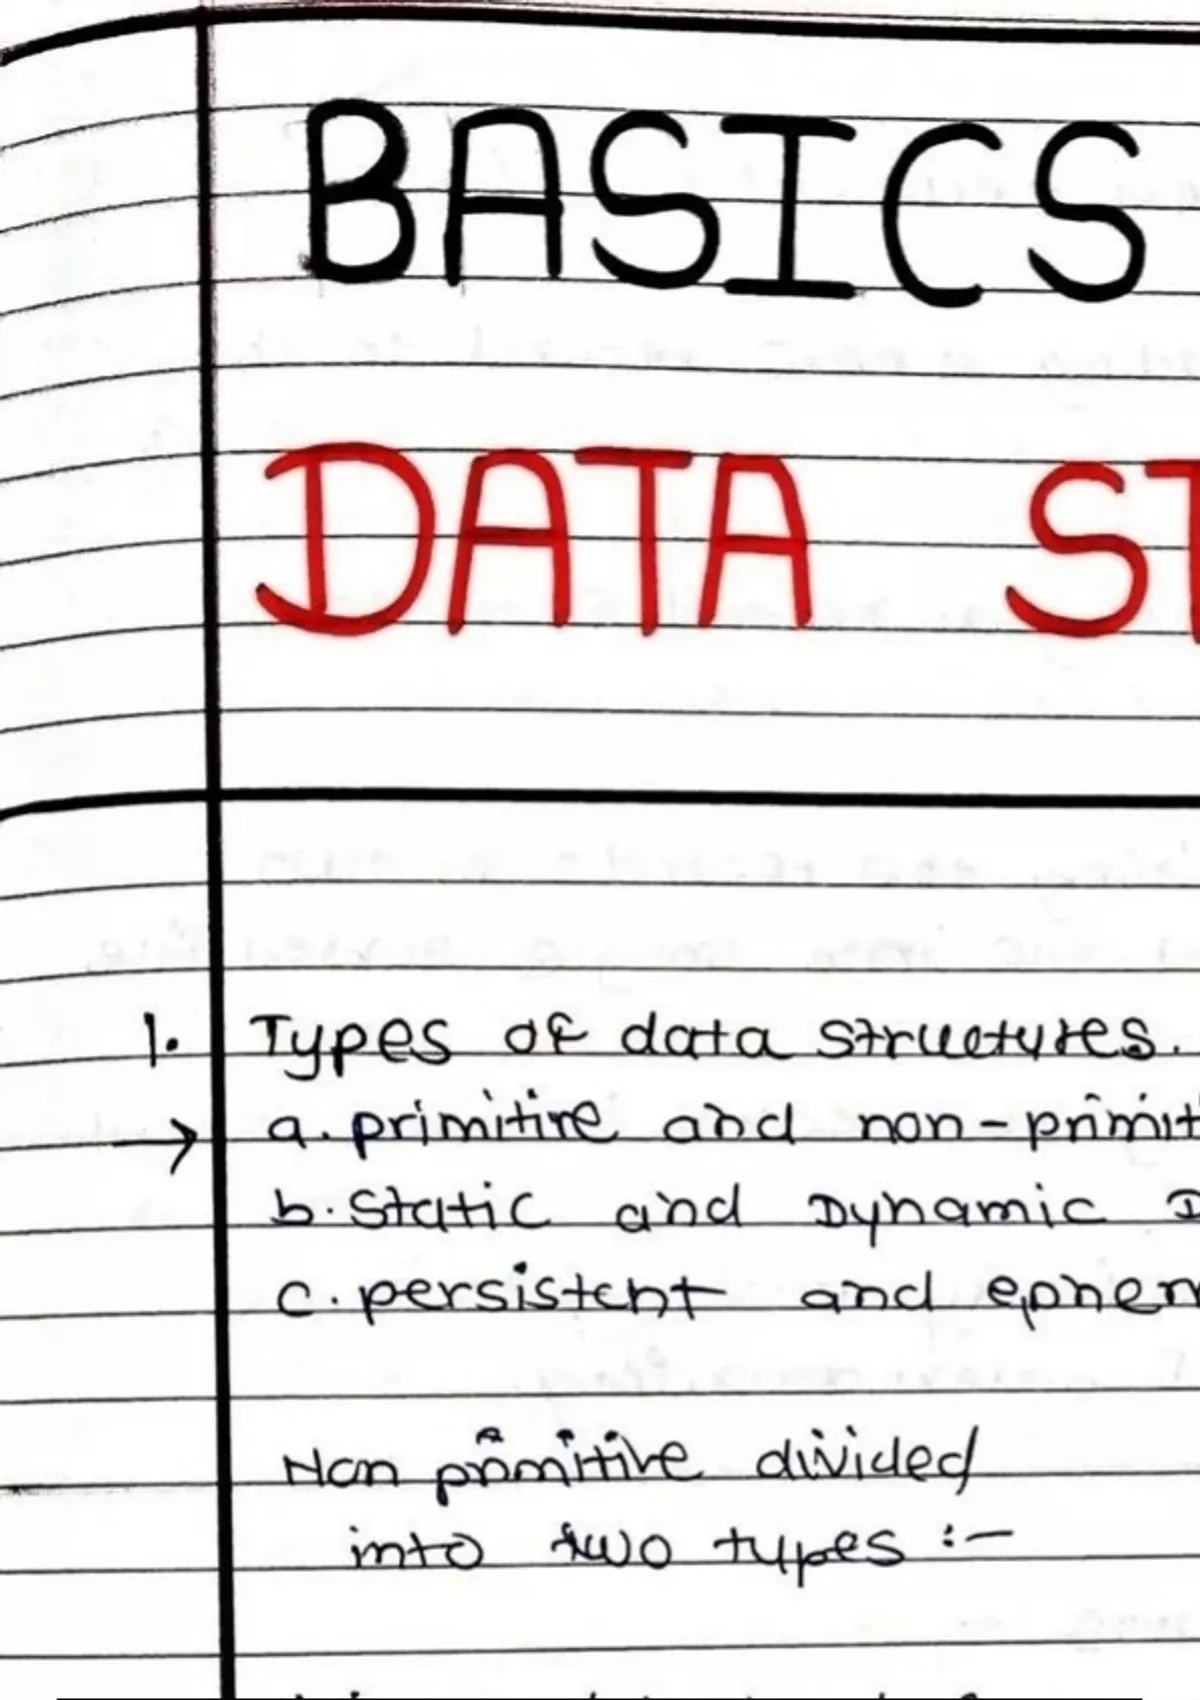 BASICS
DATA ST
1. Types of data structures.
→ a. primitive and non-primit
b. Static and Dynamic D
c. persistent and ephem
Non primitive divided
into two types :-